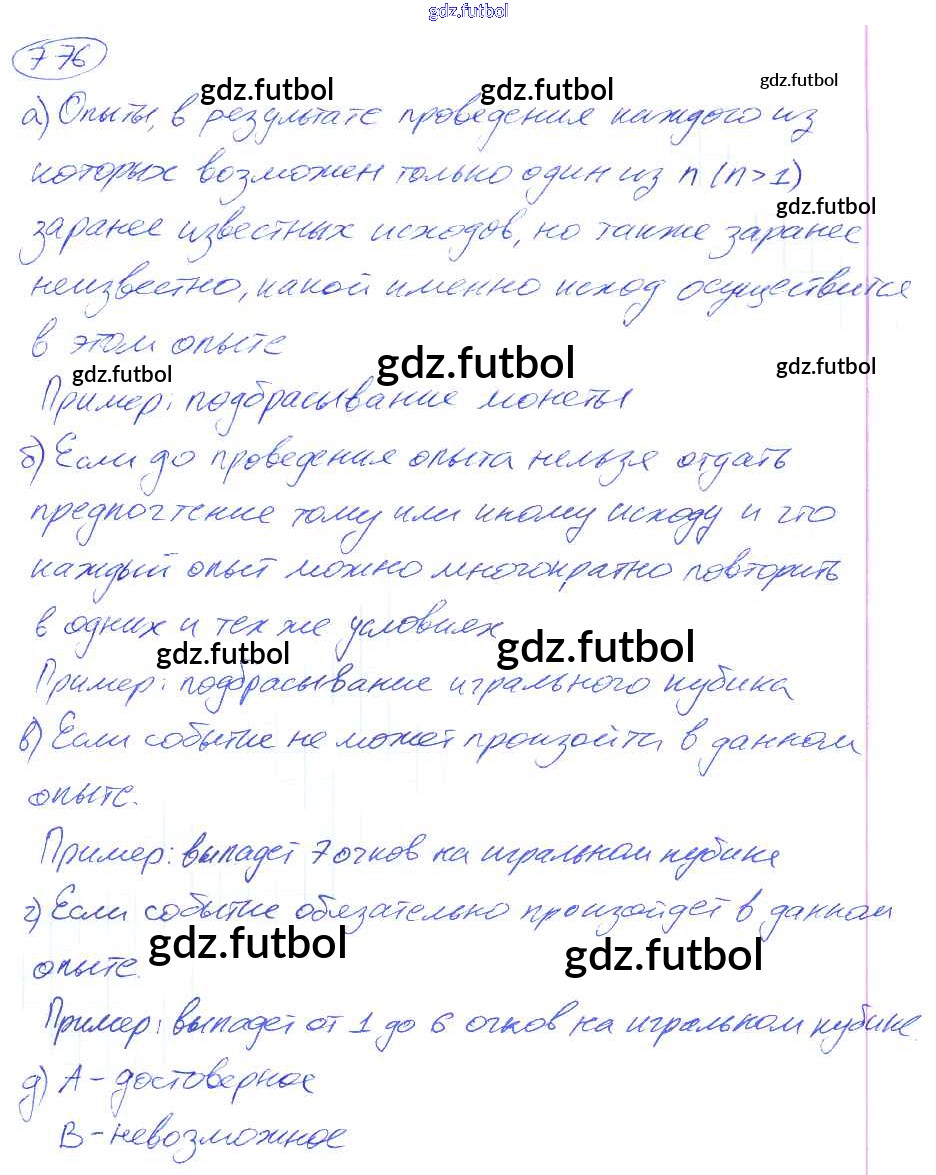 gdz.futbol
776
gdz.futbol gdz.futbol gdz.futbol
а) Опыты, в результате проведения каждого из
которых возможен только один из n (n>1)
gdz.futbol
заранее известных исходов, но также заранее
неизвестно, какой именно исход осуществится
в этом опыте
gdz.futbol gdz.futbol gdz.futbol
Пример: подбрасывание монеты
б) Если до проведения опыта нельзя отдать
предпочтение тому или иному исходу и что
каждый опыт можно многократно повторить
в одних и тех же условиях
gdz.futbol gdz.futbol
Пример: подбрасывание игрального кубика
в) Если событие не может произойти в данном
опыте.
Пример: выпадет 7 очков на игральном кубике
г) Если событие обязательно произойдет в данном
gdz.futbol gdz.futbol
опыте.
Пример: выпадет от 1 до 6 очков на игральном кубике.
д) А - достоверное
В - невозможное